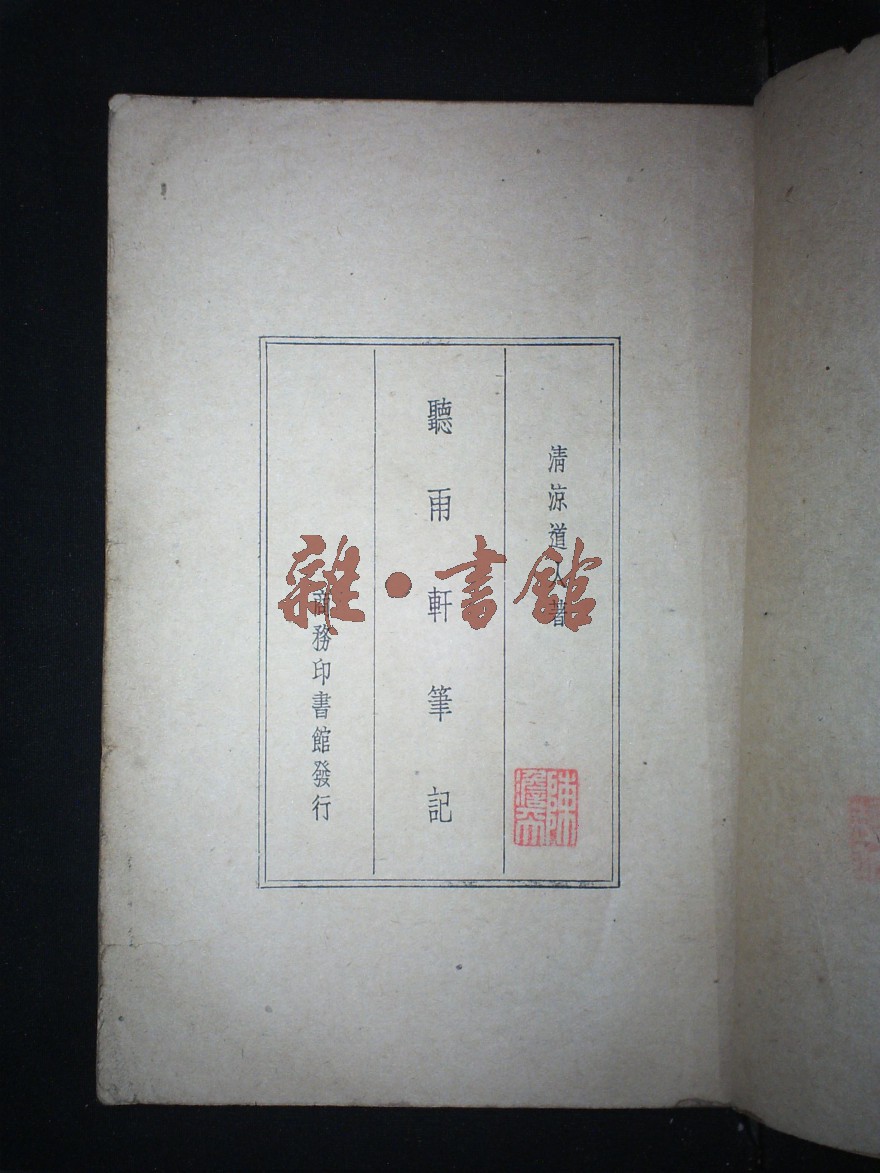 清涼道人著
聽雨軒筆記
商務印書館發行
雜·書館